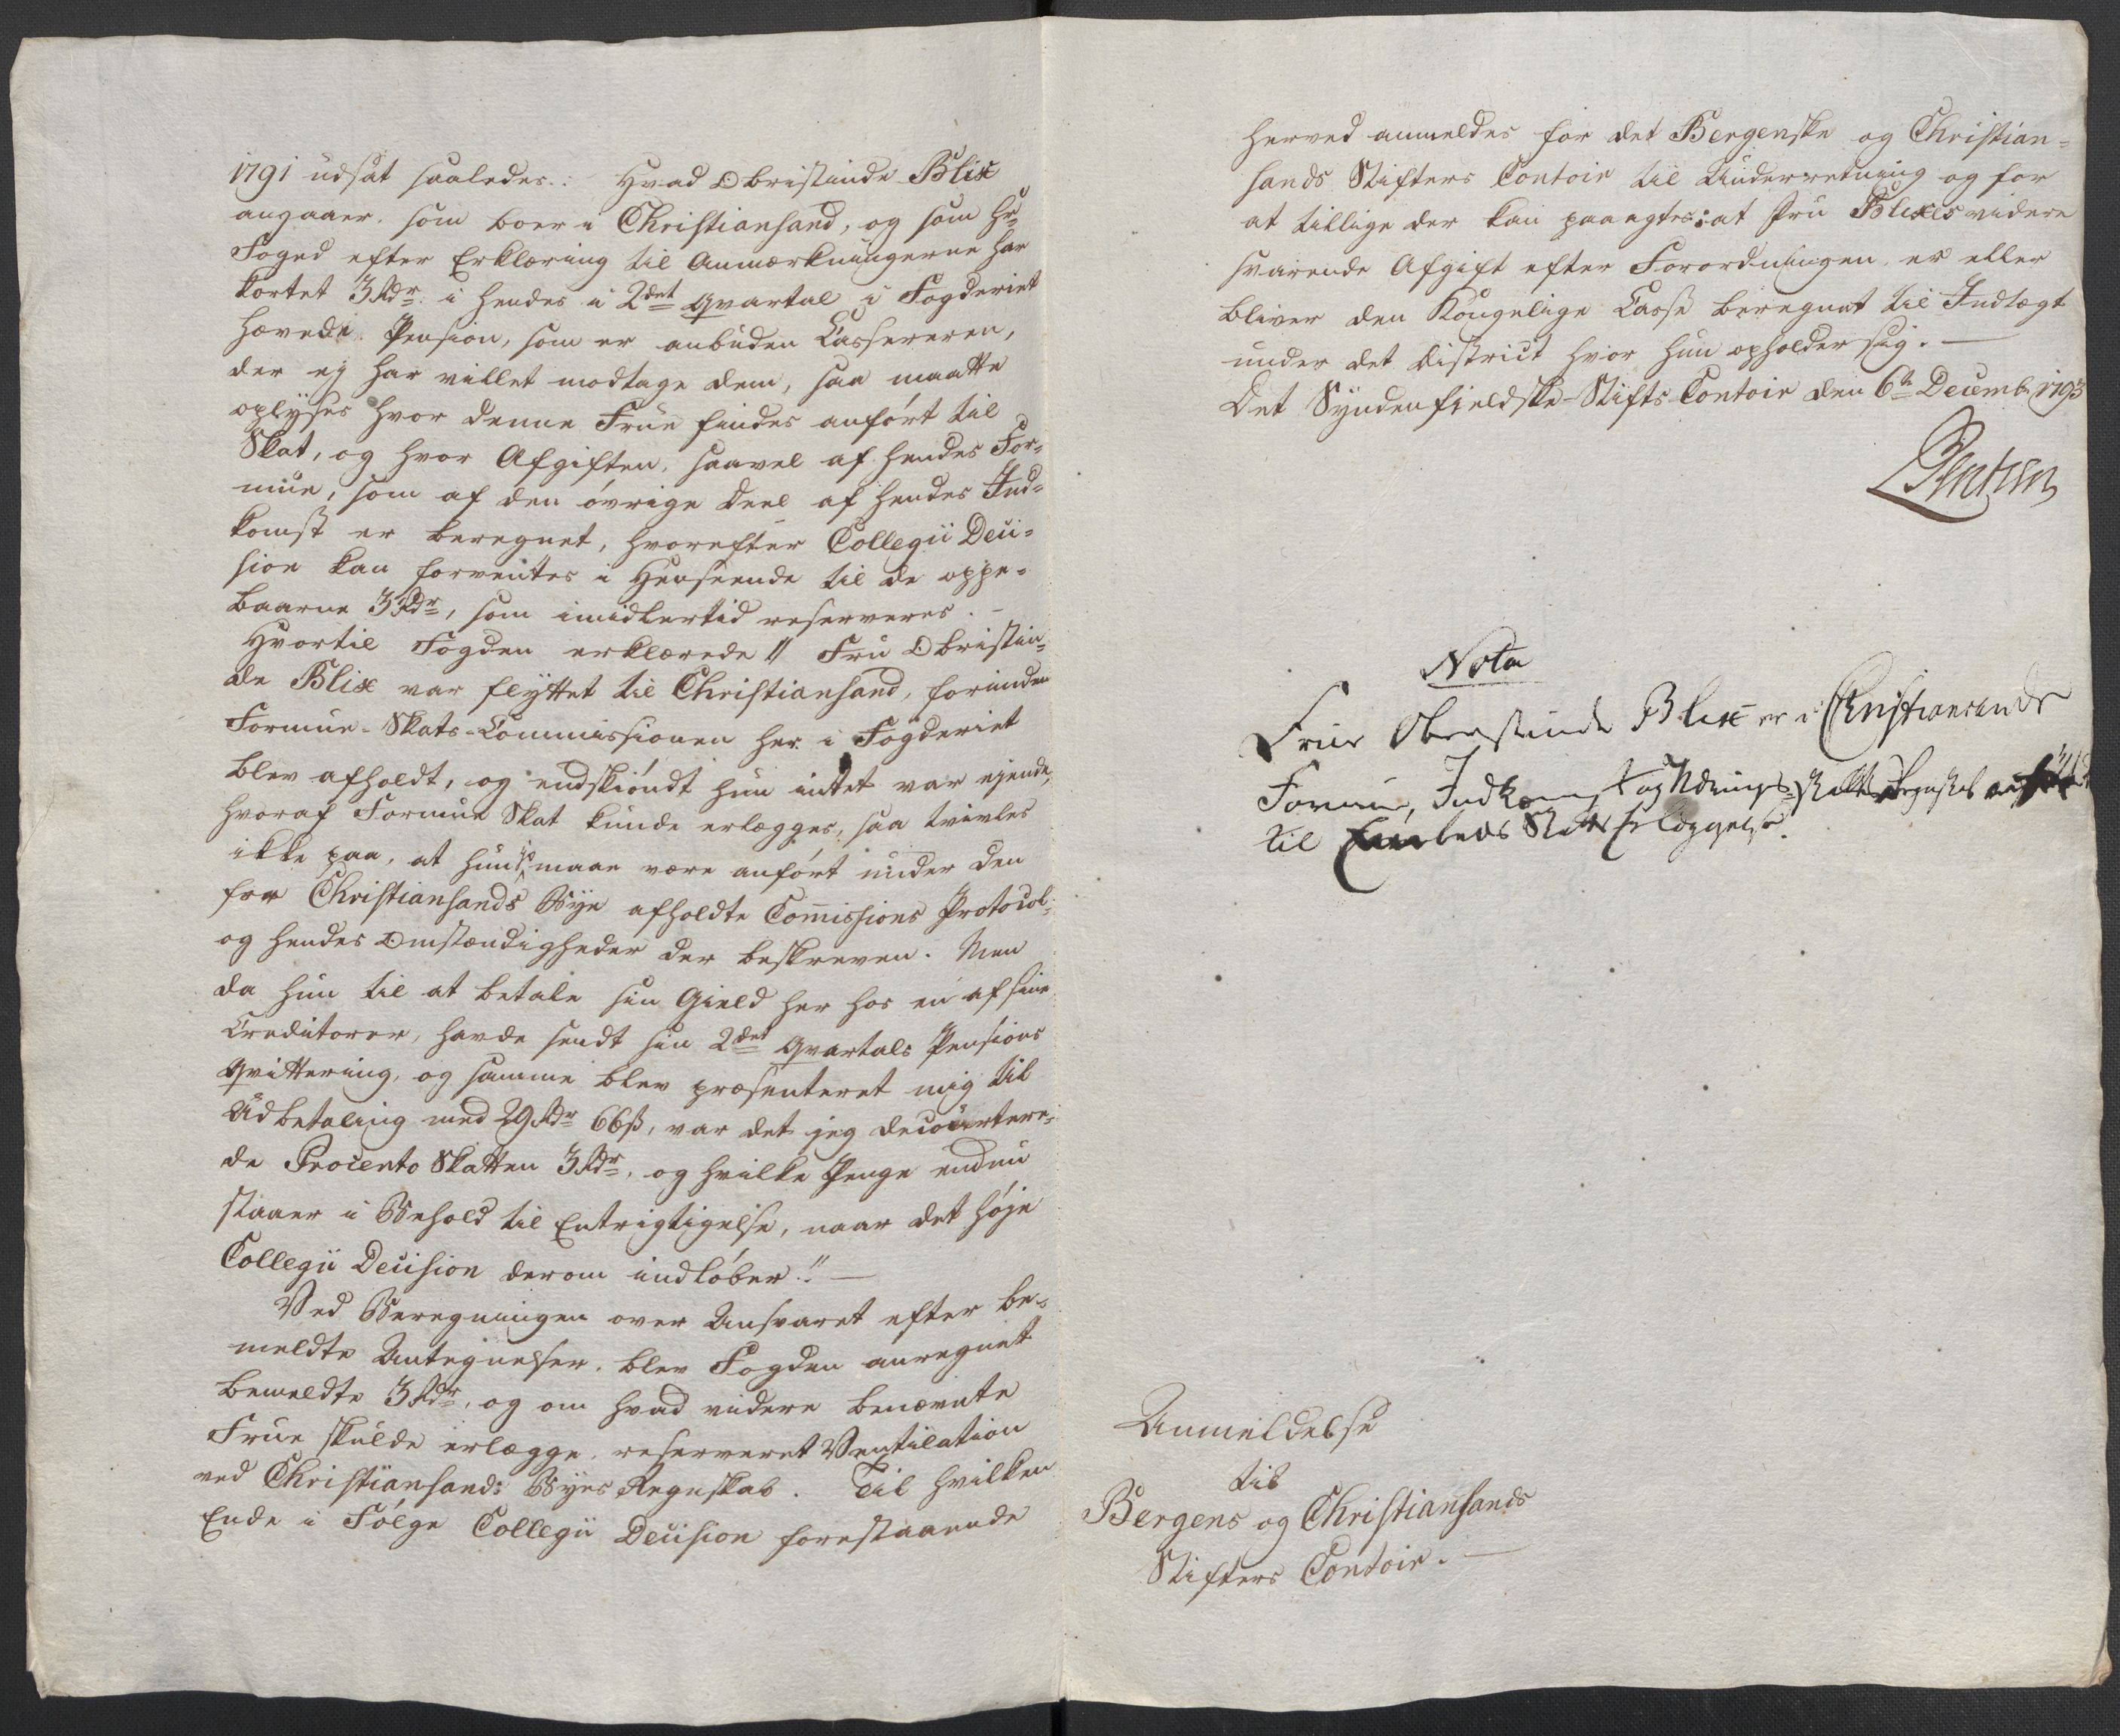 1791 udsat saaledes: Hvad Obristinde Blix
angaaer, som boer i Christiansand, og som Hr
Foged efter Erklæring til Anmærkningerne har
kortet 3 Rdr. i hendes i 2det Qvartal i Fogderiet
hævede Pension, som er anbuden Cassereren,
der ej har villet modtage dem, saa maatte
oplyses hvor denne Frue findes anført til
Skat, og hvor Afgiften, saavel af hendes For-
mue, som af den øvrige Deel af hendes Ind-
komst er beregnet, hvorefter Collegii Deci-
sion kan forventes i Henseende til de oppe-
baarne 3 Rdr, som imidlertid reserveres. -
Hvortil Fogden erklærede " Fru Obristin-
de Blix var flyttet til Christiansand, forinden
Formue-Skats-Commissionen her i Fogderiet
blev afholdt, og endskiøndt hun intet var ejende,
hvoraf Formue Skat kunde erlægges, saa tvivles
ikke paa, at hun jo maae være anført under den
for Christiansands Bye afholdte Commissions Protocol,
og hendes Omstændigheder der beskreven. Men
da hun til at betale sin Gield her hos en af sine
Creditorer, havde sendt sin 2det Qvartals Pensions
Qvittering, og samme blev præsenteret mig til
Udbetaling med 29 Rdr 66 ß, var det jeg decourtere-
de Procento Skatten 3 Rdr, og hvilke Penge endnu
staaer i Behold til Entrigtigelse, naar det høje
Collegii Decision derom indløber." —
Ved Beregningen over Ansvaret efter be-
meldte Antegnelser, blev Fogden anregnet
bemeldte 3 Rdr, og om hvad videre benævnte
Frue skulde erlægge, reserveret Ventilation
ved Christiansands Byes Regnskab. Til hvilken
Ende i Følge Collegii Decision forestaaende
herved anmeldes for det Bergenske og Christian-
sands Stifters Contoir til Underretning og for
at tillige der kan paaagtes: at Fru Blixes videre
svarende Afgift efter Forordningen, er eller
bliver den Kongelige Casse beregnet til Indtægt
under det District hvor hun opholder sig. —
Det Syndenfieldske Stifts-Contoir den 6te Decembr 1793
Bentzen
Nota
Frue Oberstinde Blix er i Christiansands
Formue, Indkomst og Nærings-Skatts Regnskab anført
til Skats Erlæggelse.
Anmeldelse
til
Bergens og Christiansands
Stifters Contoir. —